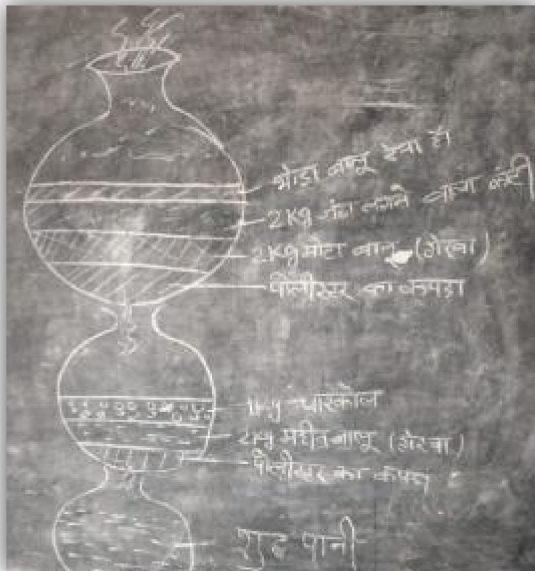 थोड़ा बालू देना है
2kg जंग लगने वाला कांटी
2kg मोटा बालू (गेरवा)
पोलीस्टर का कपड़ा
1kg चारकोल
2kg महीन बालू (गेरवा)
पोलीस्टर का कपड़ा
शुद्ध पानी